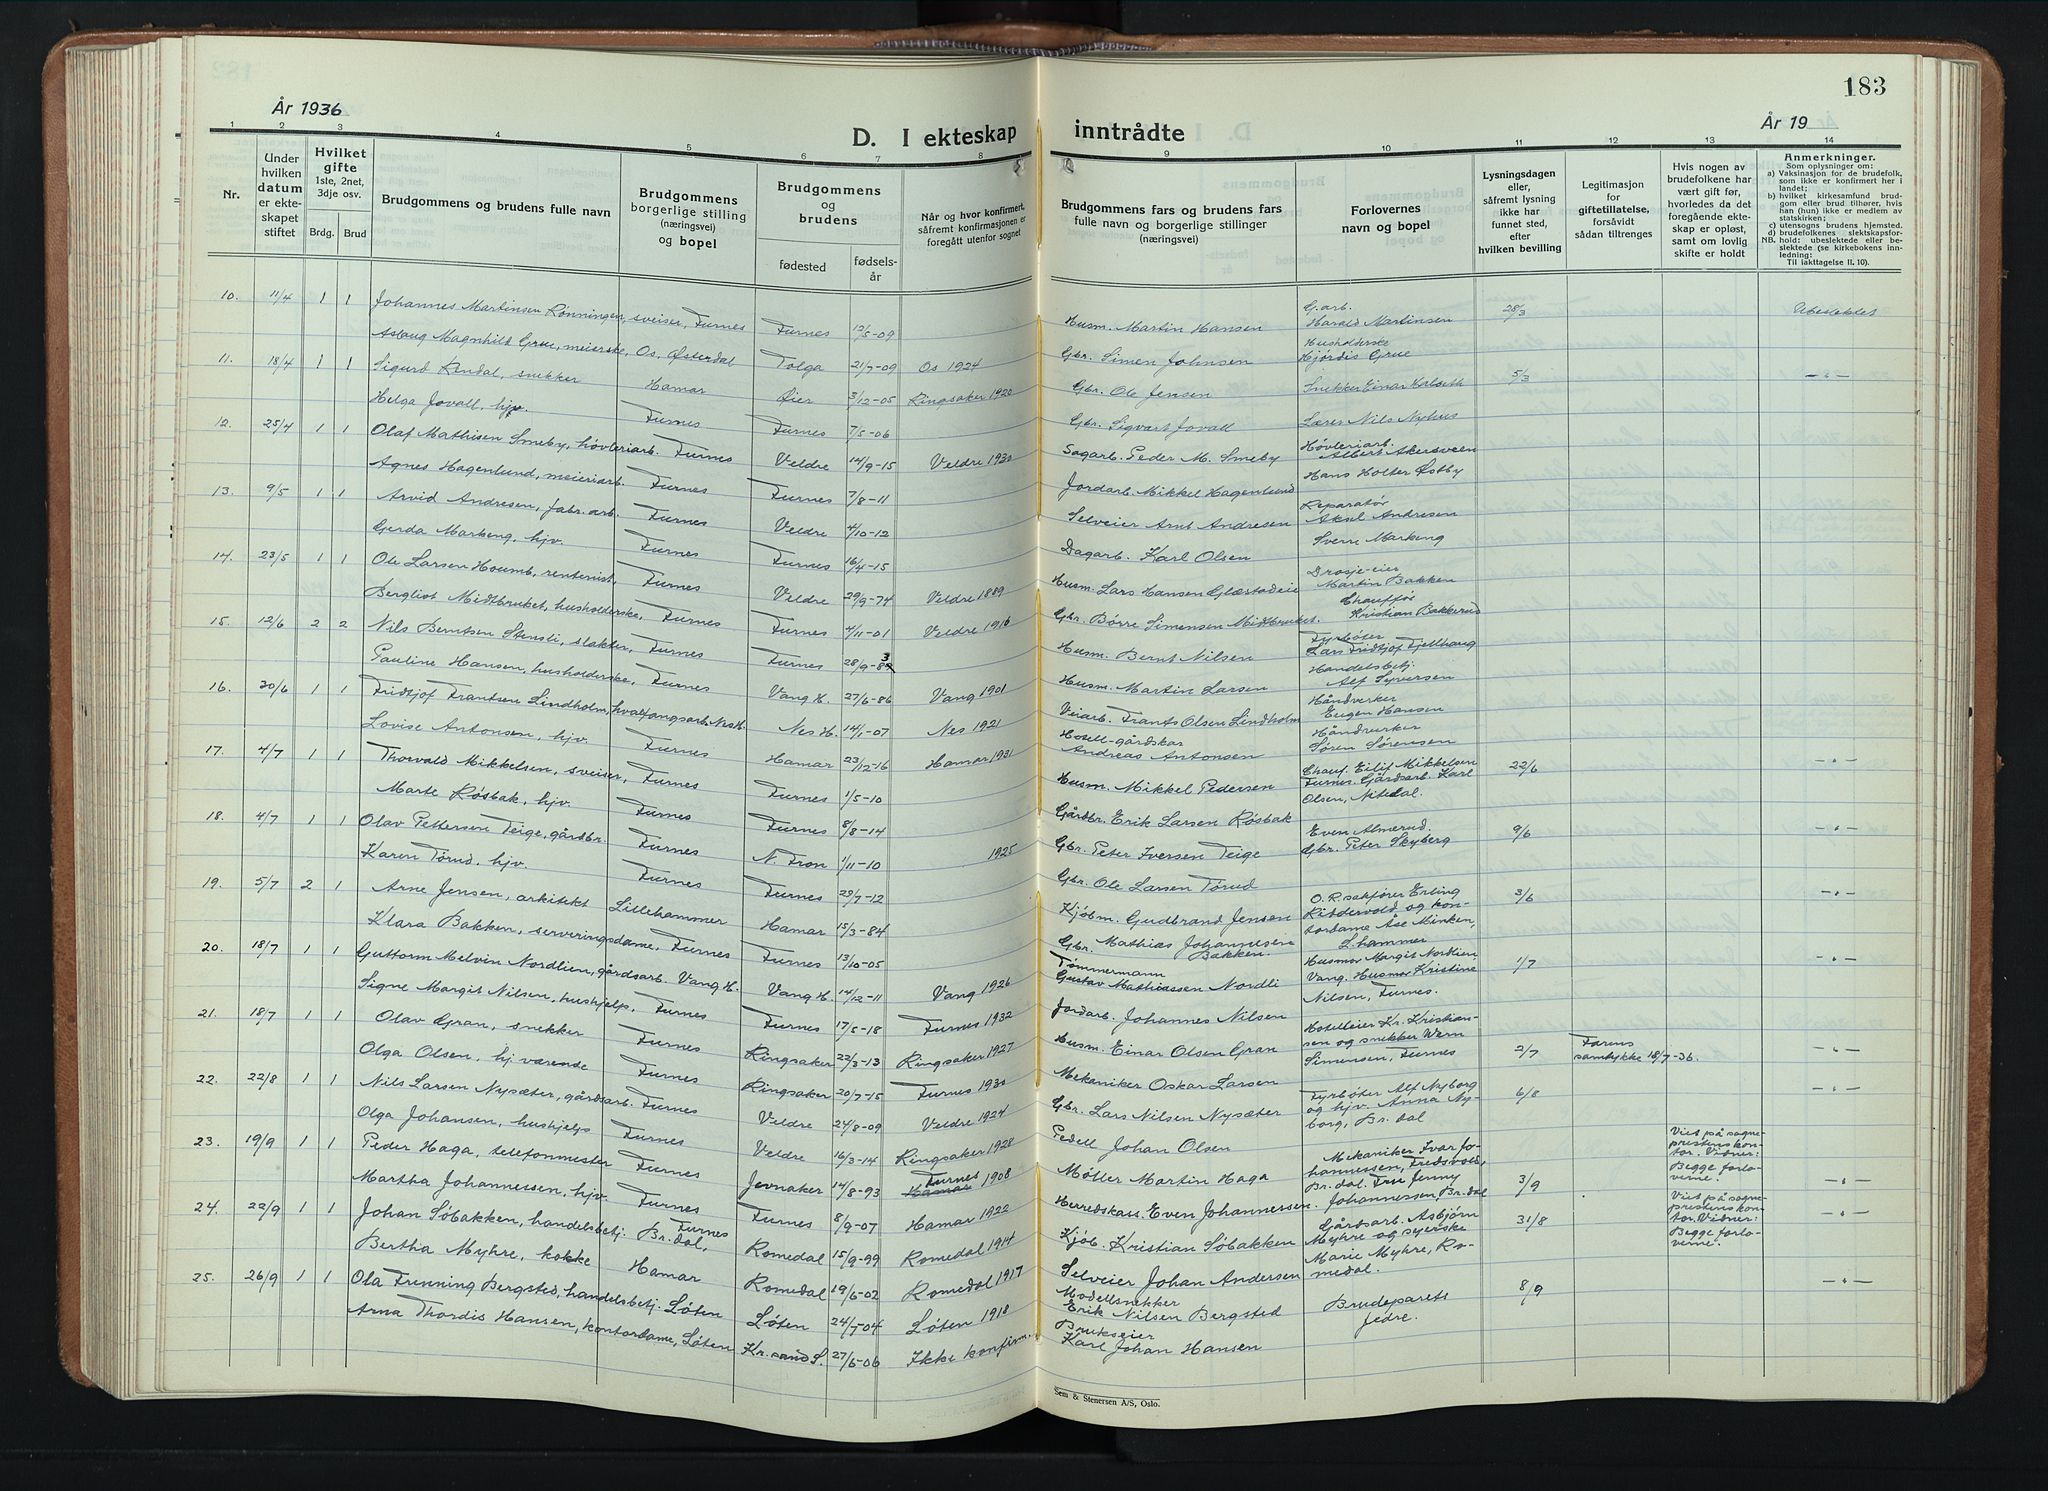 183
År 1936
År 19
D. I ekteskap inntrådte
1 2 3 4 5 6 7 8 9 10 11 12 13 14
Nr.
Under hvilken datum er ekteskapet stiftet
Hvilket gifte 1ste, 2net, 3dje osv.
Brdg. Brud
Brudgommens og brudens fulle navn
Brudgommens borgerlige stilling (næringsvei) og bopel
Brudgommens og brudens
fødested
fødselsår
Når og hvor konfirmert, såfremt konfirmasjonen er foregått utenfor sognet
Brudgommens fars og brudens fars fulle navn og borgerlige stillinger (næringsvei)
Forlovernes navn og bopel
Lysningsdagen eller, såfremt lysning ikke har funnet sted, efter hvilken bevilling
Legitimasjon for giftetillatelse, forsåvidt sådan tiltrenges
Hvis nogen av brudefolkene har vært gift før, hvorledes da det foregående ekteskap er opløst, samt om lovlig skifte er holdt
Anmerkninger.
Som oplysninger om:
a) Vaksinasjon for de brudefolk, som ikke er konfirmert her i landet;
b) hvilket kirkesamfund brudgom eller brud tilhører, hvis han (hun) ikke er medlem av statskirken;
c) utensogns brudens hjemsted.
d) brudefolkenes slektskapsforhold: ubeslektede eller beslektede (se kirkebokens innledning:
NB. Til iakttagelse II. 10).
10. 11/4 1 1 Johannes Martinsen Rønningen, sveiser, Furnes Furnes 12/5-09 Husm. Martin Hansen G.arb. Harald Martinsen 28/3 Ubeslektet
Aslaug Magnhild Grue, meierske, Os, Østerdal Tolga 21/7-09 Os 1924 Gbr. Simen Johnsen Husholderske Hjørdis Grue
11. 18/4 1 1 Sigurd Rendal, snekker Hamar Øier 3/12-05 Ringsaker 1920 Gbr. Ole Jensen Snekker Einar Kalseth 5/3 -"-
Helga Jovall, hjv. Furnes Furnes 7/5-06 Gbr. Sigvart Jovall Lærer Nils Nyhus
12. 25/4 1 1 Olaf Mathisen Smeby, høvleriarb. Furnes Veldre 14/9-15 Veldre 1930 Sagarb. Peder M. Smeby Høvleriarb. Albert Akersveen
Agnes Hagenlund, meieriarb. Furnes Furnes 7/8-11 Jordarb. Mikkel Hagenlund Hans Holter Østby
13. 9/5 1 1 Arvid Andresen, fabr.arb. Furnes Veldre 4/10-12 Selveier Arnt Andresen Reparatør Aksel Andresen
Gerda Markeng, hjv. Furnes Furnes 16/4-15 Dagarb. Karl Olsen Sverre Markeng
14. 23/5 1 1 Ole Larsen Houmb, rentenist, Furnes Veldre 29/9-74 Veldre 1889 Husm. Lars Hansen Glæstadeie Drosje-eier Martin Bakken
Bergliot Midtbruket, husholderske, Furnes Furnes 4/11-01 Veldre 1916 Gbr. Børre Simensen Midtbruket. Chauffør Kristian Bakkerud
15. 12/6 2 2 Nils Berntsen Stensli, slakter, Furnes Furnes 28/9-83 Husm. Bernt Nilsen Fyrbøter Lars Fridtjof Fjellhaug
Pauline Hansen, husholderske, Furnes Vang H. 27/6-86 Vang 1901 Husm. Martin Larsen Handelsbetj. Alf Syversen
16. 30/6 1 1 Fridtjof Frantsen Lindholm, hvalfangsarb. Nes H. Nes H. 14/1-07 Nes 1921 Veiarb. Frants Olsen Lindholm Håndverker Eugen Hansen
Lovise Antonsen, hjv. Furnes Hamar 23/12-16 Hamar 1931 Hotell-gårdskar Andreas Antonsen Håndverker Søren Sørensen
17. 4/7 1 1 Thorvald Mikkelsen, sveiser, Furnes Furnes 1/5-10 Husm. Mikkel Pedersen Chauf. Eilif Mikkelsen Furnes. Gårdsarb. Karl Olsen, Nitedal. 22/6 -"-
Marte Røsbak, hjv. Furnes Furnes 8/8-14 Gårdbr. Erik Larsen Røsbak
18. 4/7 1 1 Olav Pettersen Teige, gårdbr. Furnes N. Fron 1/11-10 1925 Gbr. Peter Iversen Teige Even Almerud. Gbr. Peter Skyberg 9/6 -"-
Karen Tørud, hjv. Furnes Furnes 29/7-12 Gbr. Ole Larsen Tørud
19. 5/7 2 1 Arne Jensen, arkitekt Lillehammer Hamar 15/3-84 Kjøbm. Gudbrand Jensen O.R.sakfører Erling Riddervold og kontordame Åse Minken, L.hammer 3/6 -"-
Klara Bakken, serveringsdame, Furnes Furnes 13/10-05 Gbr. Mathias Johannesen Bakken.
20. 18/7 1 1 Guttorm Melvin Nordlien, gårdsarb. Vang H. Vang H. 14/12-11 Vang 1926 Tømmermann Gustav Mathiassen Nordli Husmor Margit Nordlien Vang. Husmor Kristine Nilsen, Furnes. 1/7 -"-
Signe Margit Nilsen, hushjelp, Furnes Furnes 17/5-18 Furnes 1932 Jordarb. Johannes Nilsen
21. 18/7 1 1 Olav Gran, snekker Furnes Ringsaker 22/3-13 Ringsaker 1927 Husm. Einar Olsen Gran Hotelleier Kr. Kristiansen og snekker Wern Simensen, Furnes 2/7 Farens samtykke 18/7-36. -"-
Olga Olsen, hj.værende Furnes Ringsaker 20/7-15 Furnes 1930 Mekaniker Oskar Larsen
22. 22/8 1 1 Nils Larsen Nysæter, gårdsarb. Furnes Veldre 24/8-09 Veldre 1924 Gbr. Lars Nilsen Nysæter Fyrbøter Alf Nyborg og hjv. Anna Nyborg, Br.dal 6/8 -"-
Olga Johansen, hushjelp Furnes Veldre 16/3-14 Ringsaker 1928 Pedell Johan Olsen
23. 19/9 1 1 Peder Haga, telefonmester Furnes Jevnaker 14/8-93 Hamar Furnes 1908 Møller Martin Haga Mekaniker Ivar Johannessen, Fredsvold, Br.dal. Fru Jenny Johannessen, Br.dal 3/9 Viet på sogneprestens kontor. Vidner: Begge forloverne. -"-
Martha Johannessen, hjv. Furnes Furnes 8/9-07 Hamar 1922 Herredskass. Even Johannessen.
24. 22/9 1 1 Johan Søbakken, handelsbetj. Br.dal, Furnes Romedal 15/9-99 Romedal 1914 Kjøb. Kristian Søbakken Gårdsarb. Asbjørn Myhre og syerske Marie Myhre, Romedal. 31/8 Viet på sogneprestens kontor. Vidner: Begge forloverne. -"-
Bertha Myhre, kokke Hamar Romedal 19/6-02 Romedal 1917 Selveier Johan Andersen
25. 26/9 1 1 Ola Frenning Bergsted, handelsbetj. Løten Løten 24/7-04 Løten 1918 Modellsnekker Erik Nilsen Bergsted Brudeparets fedre. 8/9 -"-
Arna Thordis Hansen, kontordame, Løten Kr.sand S. 27/5-06 Ikke konfirm. Brukseier Karl Johan Hansen
Sem & Stenersen A/S, Oslo.